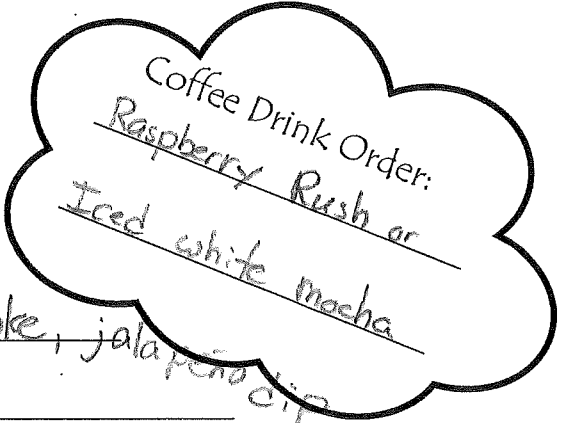 Coffee Drink Order:
Raspberry Rush or
Iced white mocha
jalapeño dip